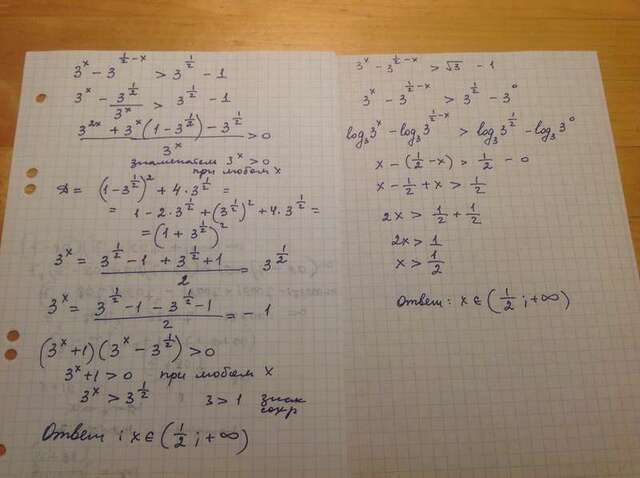 3^x - 3^(1/2 - x) > 3^(1/2) - 1
3^x - 3^(1/2)/3^x > 3^(1/2) - 1
(3^(2x) + 3^x(1 - 3^(1/2)) - 3^(1/2))/3^x > 0
знаменатель 3^x > 0
при любом x
Д = (1 - 3^(1/2))^2 + 4·3^(1/2) =
= 1 - 2·3^(1/2) + (3^(1/2))^2 + 4·3^(1/2) =
= (1 + 3^(1/2))^2
3^x = (3^(1/2) - 1 + 3^(1/2) + 1)/2 = 3^(1/2)
3^x = (3^(1/2) - 1 - 3^(1/2) - 1)/2 = - 1
(3^x + 1)(3^x - 3^(1/2)) > 0
3^x + 1 > 0 при любом x
3^x > 3^(1/2) 3 > 1 знак
сохр
Ответ: x ∈ (1/2; +∞)
3^x - 3^(1/2 - x) > √3 - 1
3^x - 3^(1/2 - x) > 3^(1/2) - 3^0
log_3 3^x - log_3 3^(1/2 - x) > log_3 3^(1/2) - log_3 3^0
x - (1/2 - x) > 1/2 - 0
x - 1/2 + x > 1/2
2x > 1/2 + 1/2
2x > 1
x > 1/2
Ответ: x ∈ (1/2; +∞)